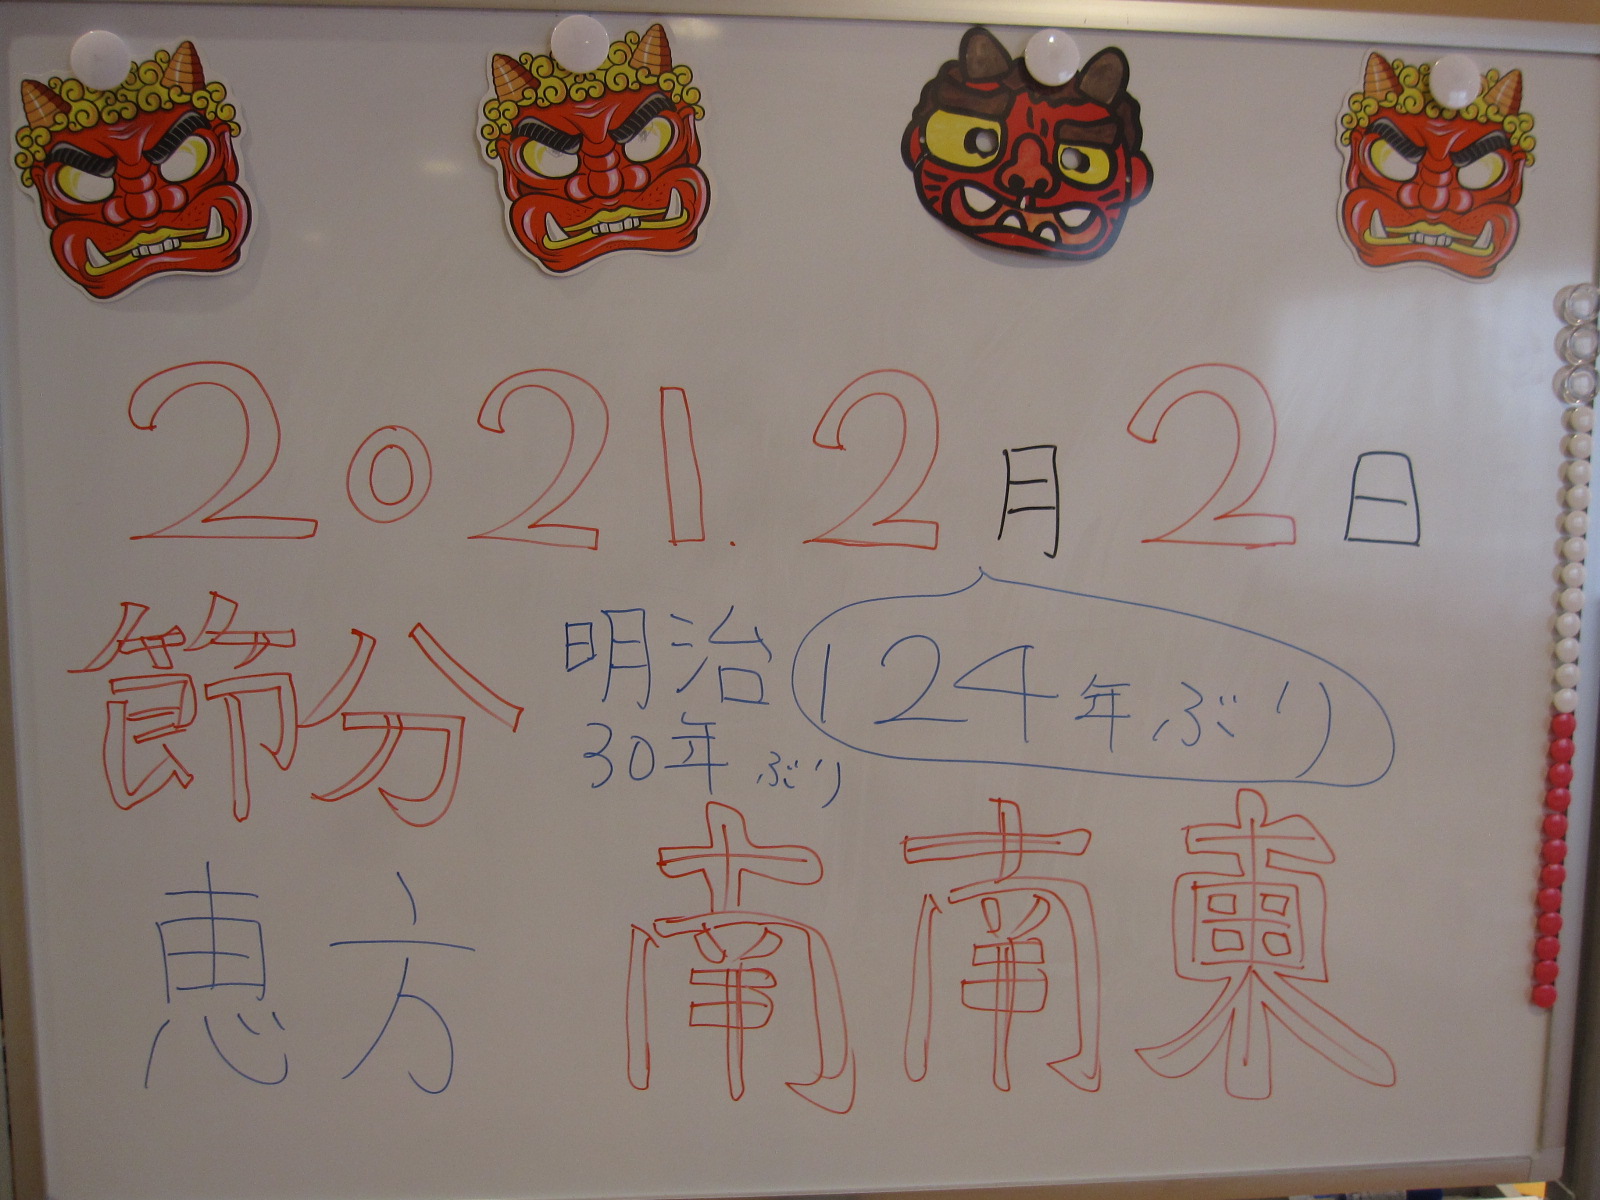 2021.2月2日
節分 明治30年ぶり
124年ぶり
恵方 南南東